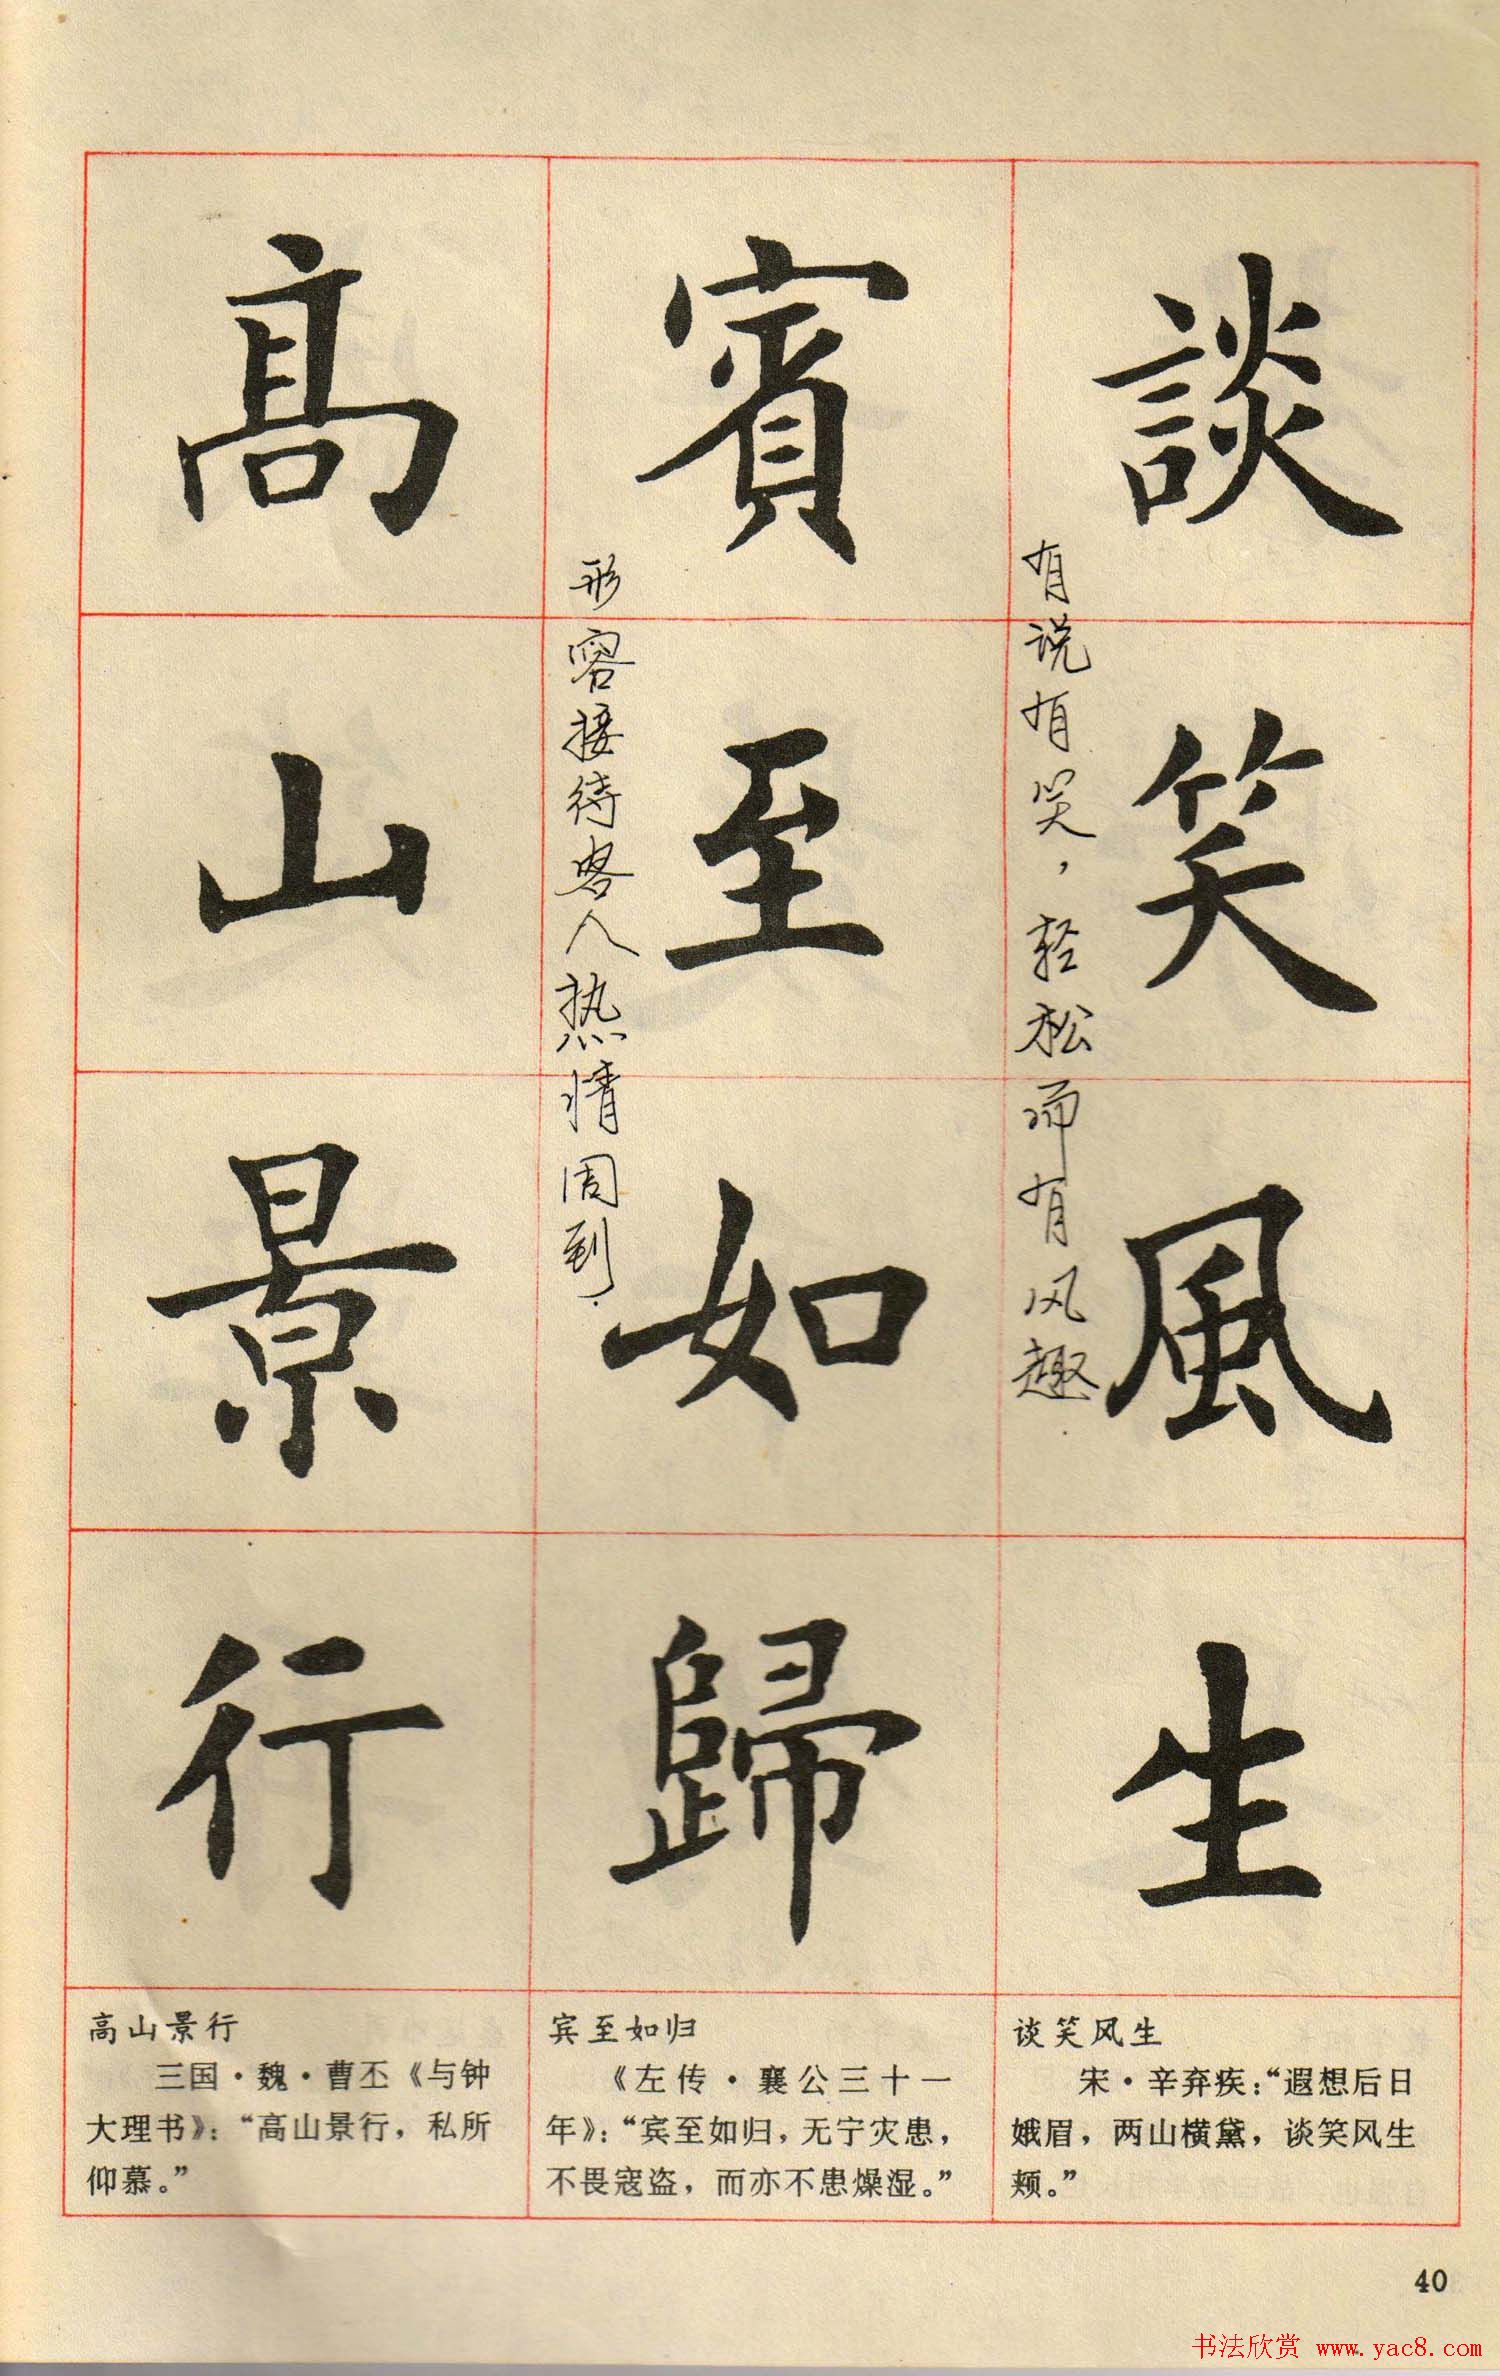 談笑風生
有说有笑，轻松而有风趣.
賓至如歸
形容接待客人热情周到.
高山景行
谈笑风生
宋·辛弃疾：“遐想后日
娥眉，两山横黛，谈笑风生
颊。”
宾至如归
《左传·襄公三十一
年》：“宾至如归，无宁灾患，
不畏寇盗，而亦不患燥湿。”
高山景行
三国·魏·曹丕《与钟
大理书》：“高山景行，私所
仰慕。”
40
书法欣赏 www.yac8.com